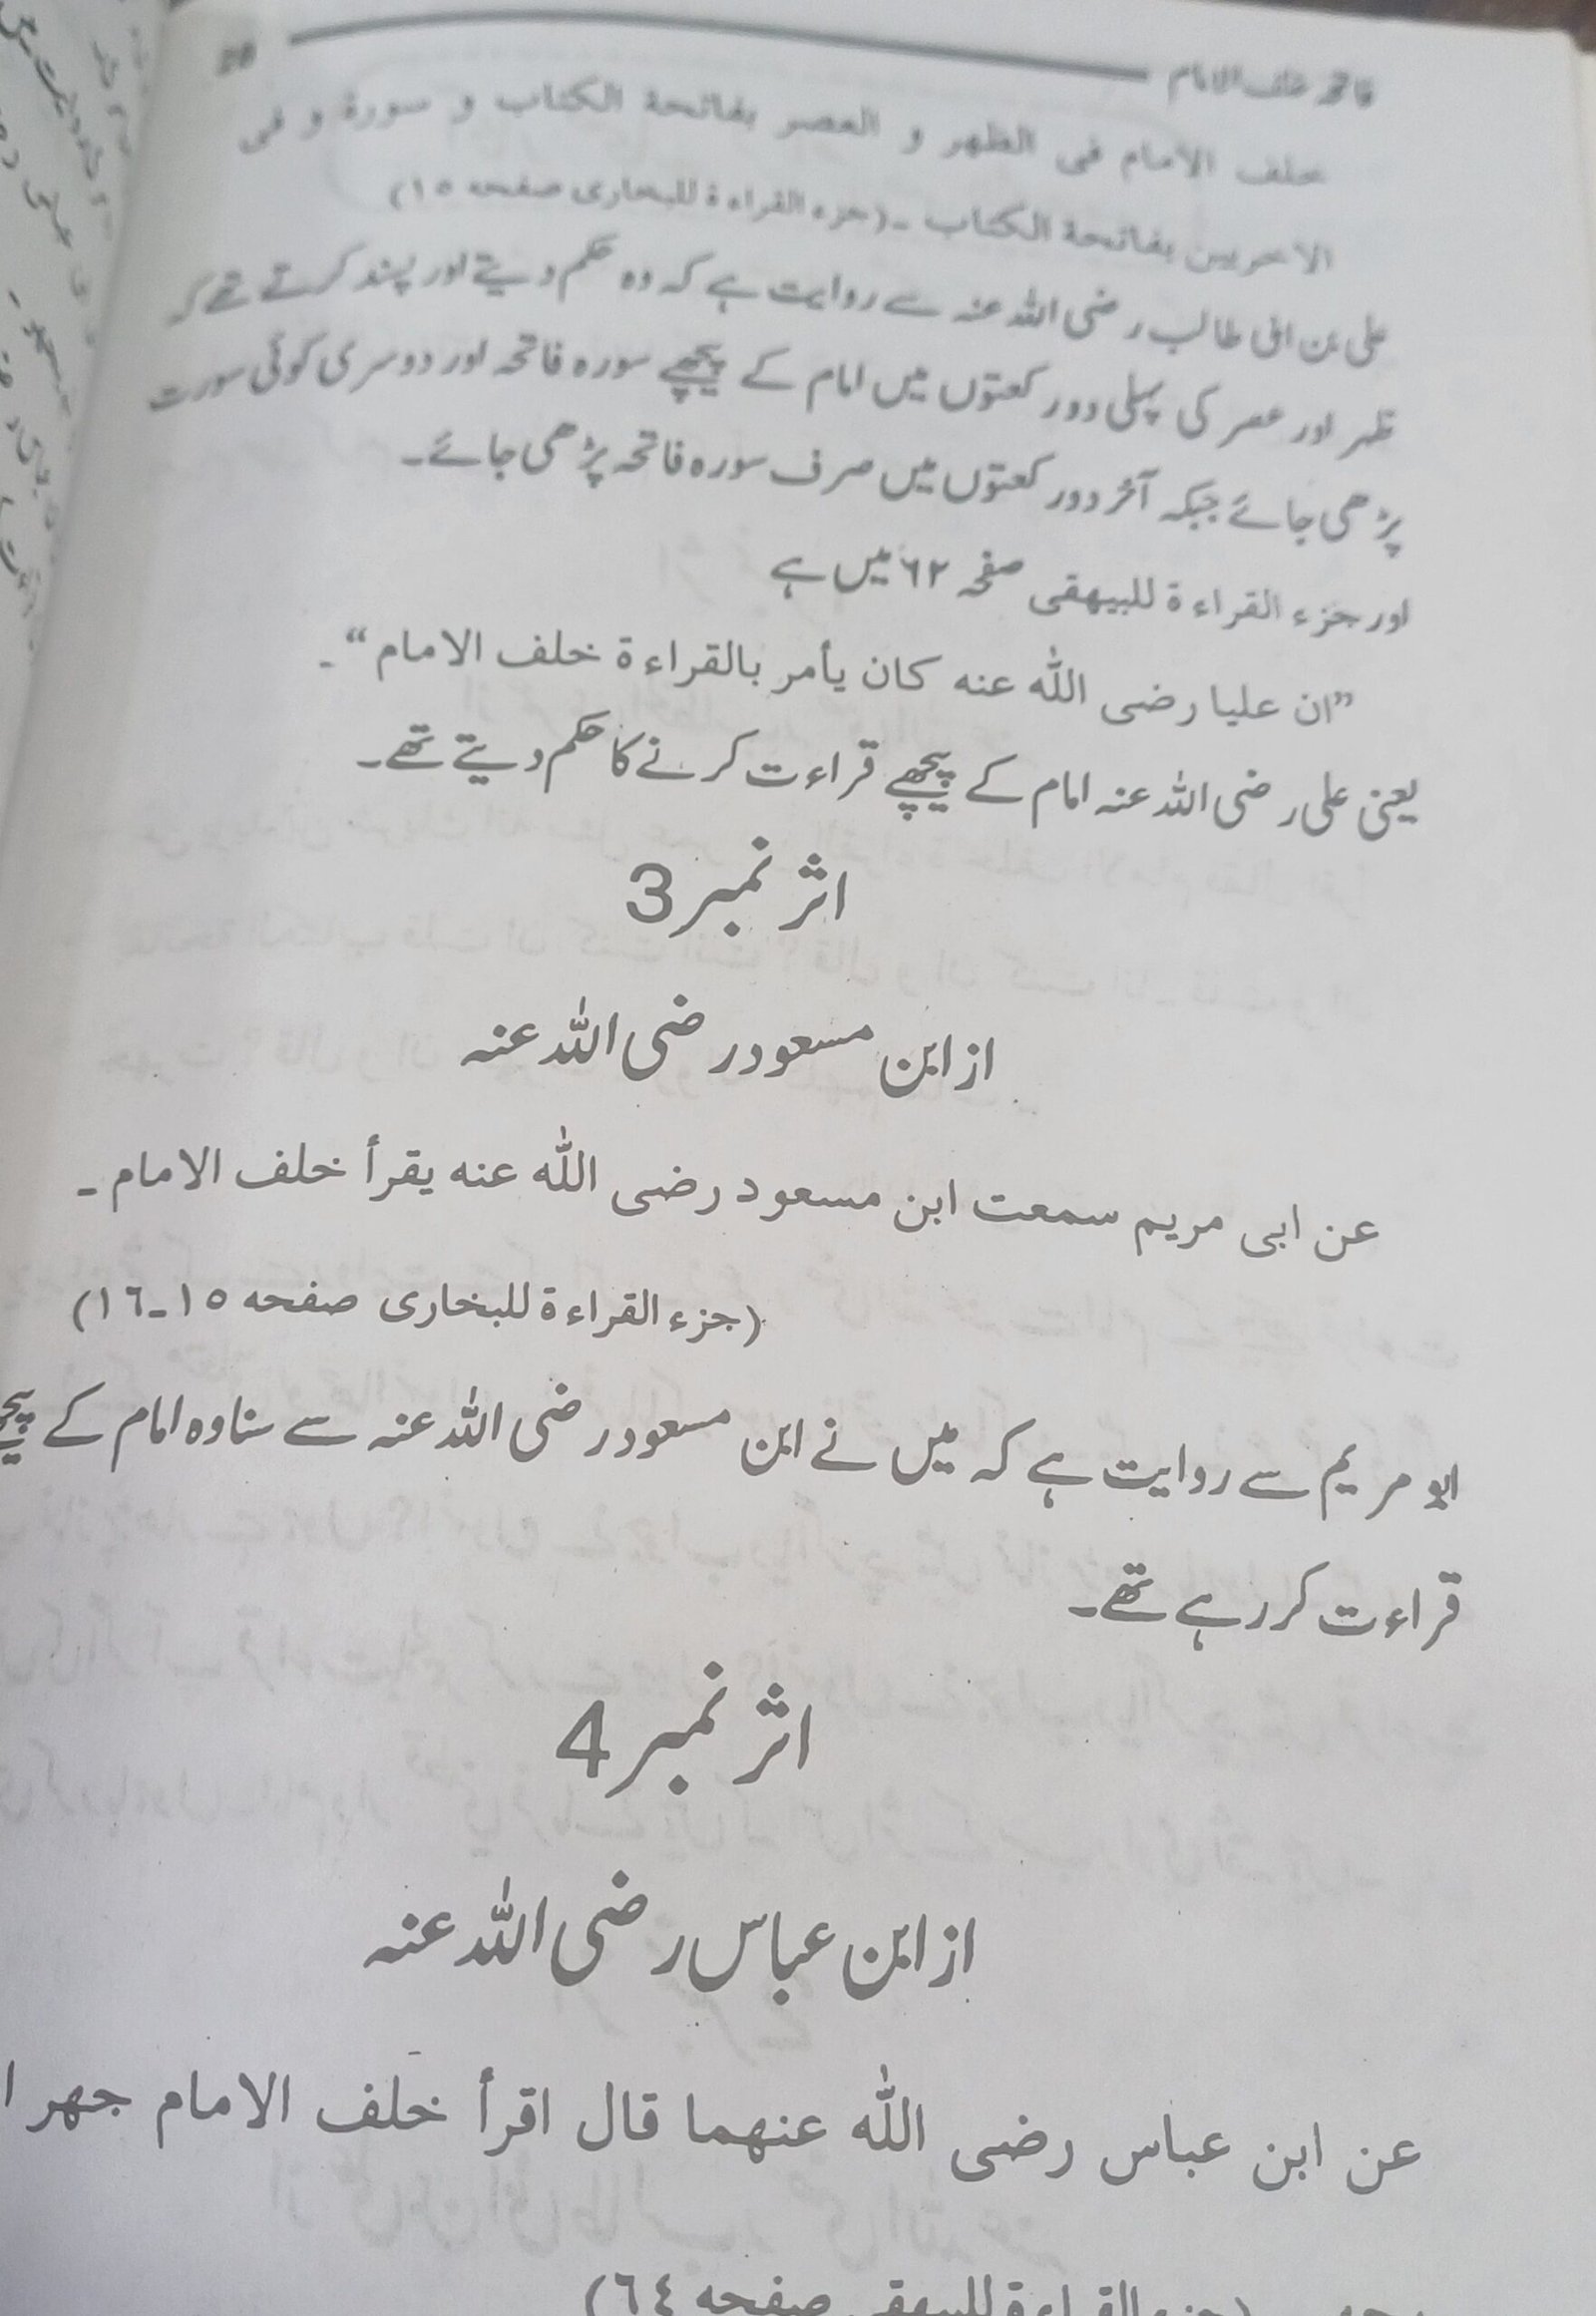 فاتحہ خلف الامام 28
خلف الامام فى الظهر و العصر بفاتحة الكتاب و سورة و فى
الاخريين بفاتحة الكتاب ـ (جزء القراءة للبخارى صفحه ١٥)
علی بن ابی طالب رضی اللہ عنہ سے روایت ہے کہ وہ حکم دیتے اور پسند کرتے تھے کہ
ظہر اور عصر کی پہلی دو رکعتوں میں امام کے پیچھے سورہ فاتحہ اور دوسری کوئی سورت
پڑھی جائے جبکہ آخر دو رکعتوں میں صرف سورہ فاتحہ پڑھی جائے۔
اور جزء القراءة للبيهقى صفحہ ٦٢ میں ہے
”ان عليا رضى الله عنه كان يأمر بالقراءة خلف الامام“ ـ
یعنی علی رضی اللہ عنہ امام کے پیچھے قراءت کرنے کا حکم دیتے تھے۔
اثر نمبر 3
از ابن مسعود رضی اللہ عنہ
عن ابى مريم سمعت ابن مسعود رضى الله عنه يقرأ خلف الامام ـ
(جزء القراءة للبخارى صفحه ١٥ـ١٦)
ابو مریم سے روایت ہے کہ میں نے ابن مسعود رضی اللہ عنہ سے سنا وہ امام کے
قراءت کر رہے تھے۔
اثر نمبر 4
از ابن عباس رضی اللہ عنہ
عن ابن عباس رضى الله عنهما قال اقرأ خلف الامام جهر ا
(جزء القراءة للبيهقى صفحه ٦٤)